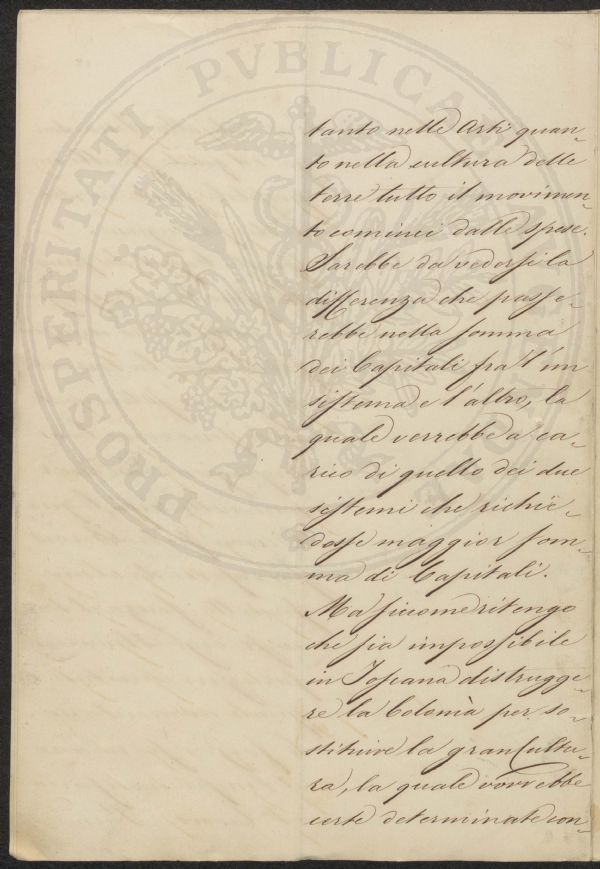 PROSPERITATI PVBLICAE
tanto nelle Arti quan-
to nella cultura delle
terre tutto il movimen-
to cominci dalle spese.
Sarebbe da vedersi la
differenza che passe-
rebbe nella somma
dei Capitali fra l'un
sistema e l'altro, la
quale verrebbe a ca-
rico di quello dei due
sistemi che richie-
desse maggior som-
ma di Capitali.
Ma siccome ritengo
che sia impossibile
in Toscana distrugge-
re la Colonìa per so-
stituire la gran Cultu-
ra, la quale vorrebbe
certe determinate con-